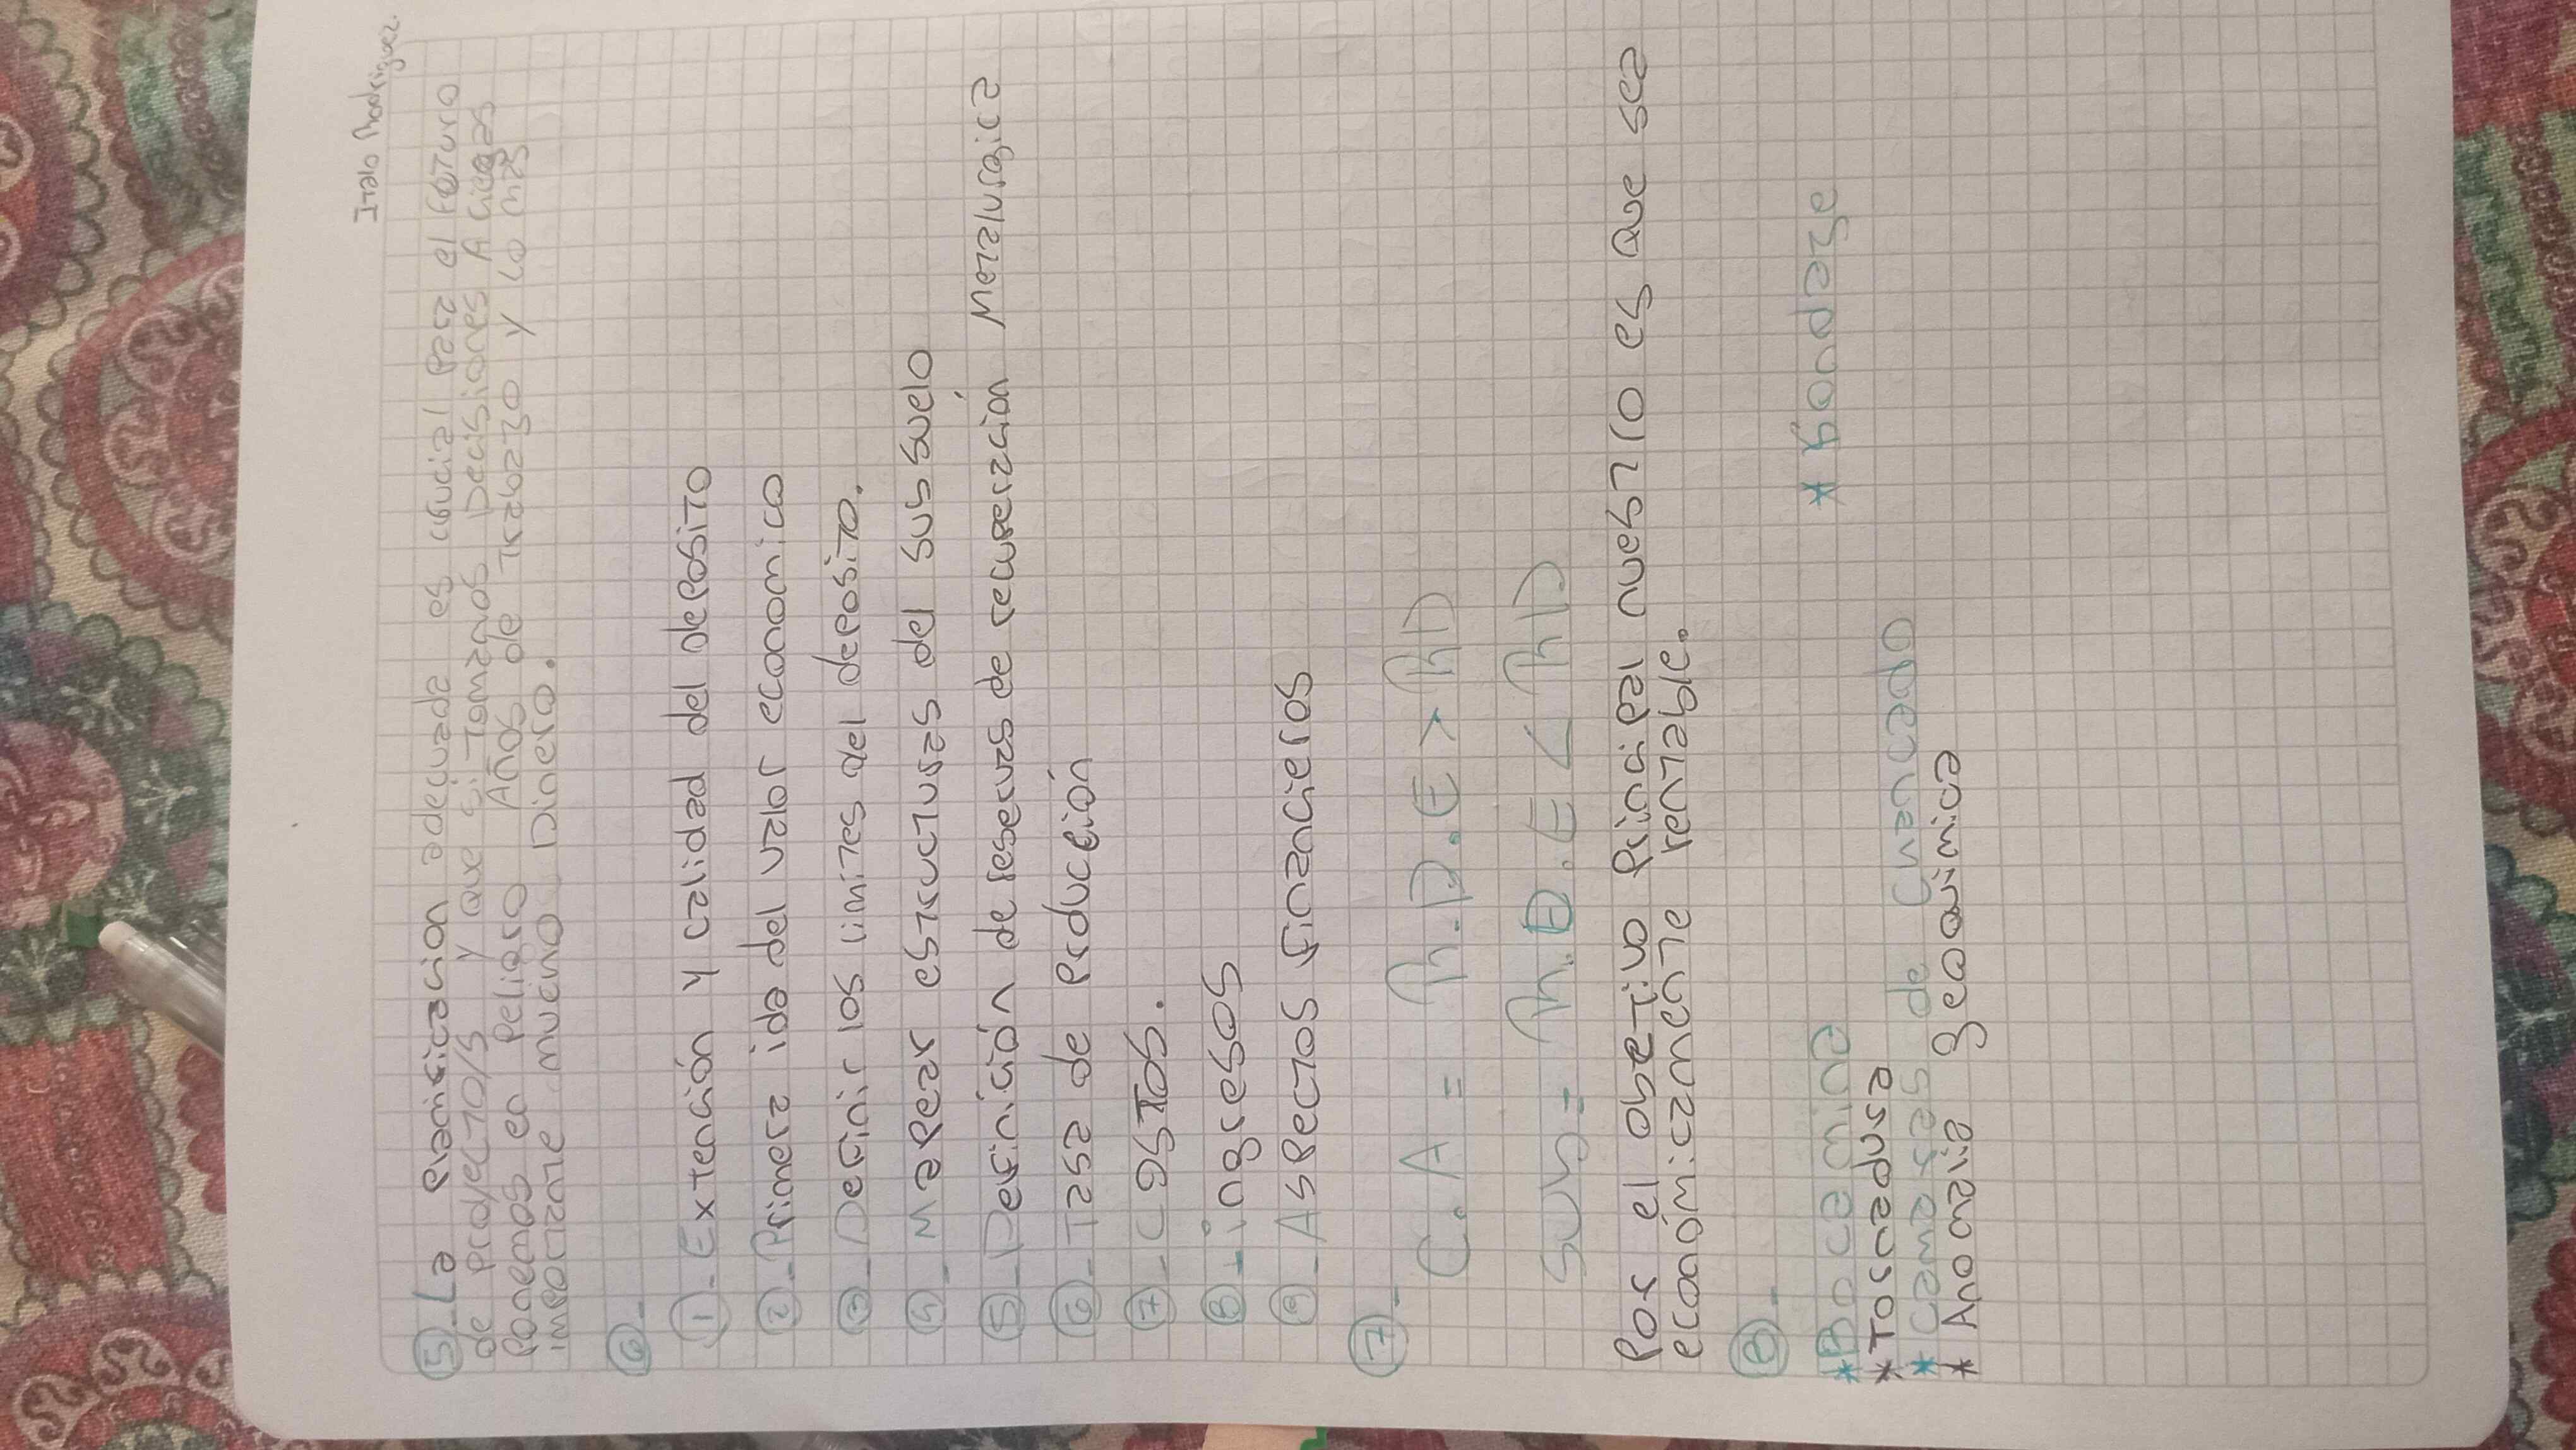 Italo Rodriguez.
⑤_ La planificacion adecuada es crucial para el futuro
de proyecto/s y que si tomamos Decisiones A ciegas
Ponemos en peligro Años de trabazo y lo mas
importante mucho Dinero.
⑥_
①_ Extención y calidad del deposito
②_ Primera ida del valor economico
③_ Definir los limites del deposito.
④_ Mapear estructuras del sus suelo
⑤_ Definición de reservas de recuperación Metalurgica
⑥_ Tasa de Producción
⑦_ Costos.
⑧_ ingresos
⑨_ Aspectos financieros
⑦_
C. A = > RD
Sub = < RD
Por el obetivo Principal nuestro es que sea
económicamente rentable.
⑧_
*Bocamina *Rondaze
*Tosradura
*Camaras de Chancado
*Anomalia geoquimica